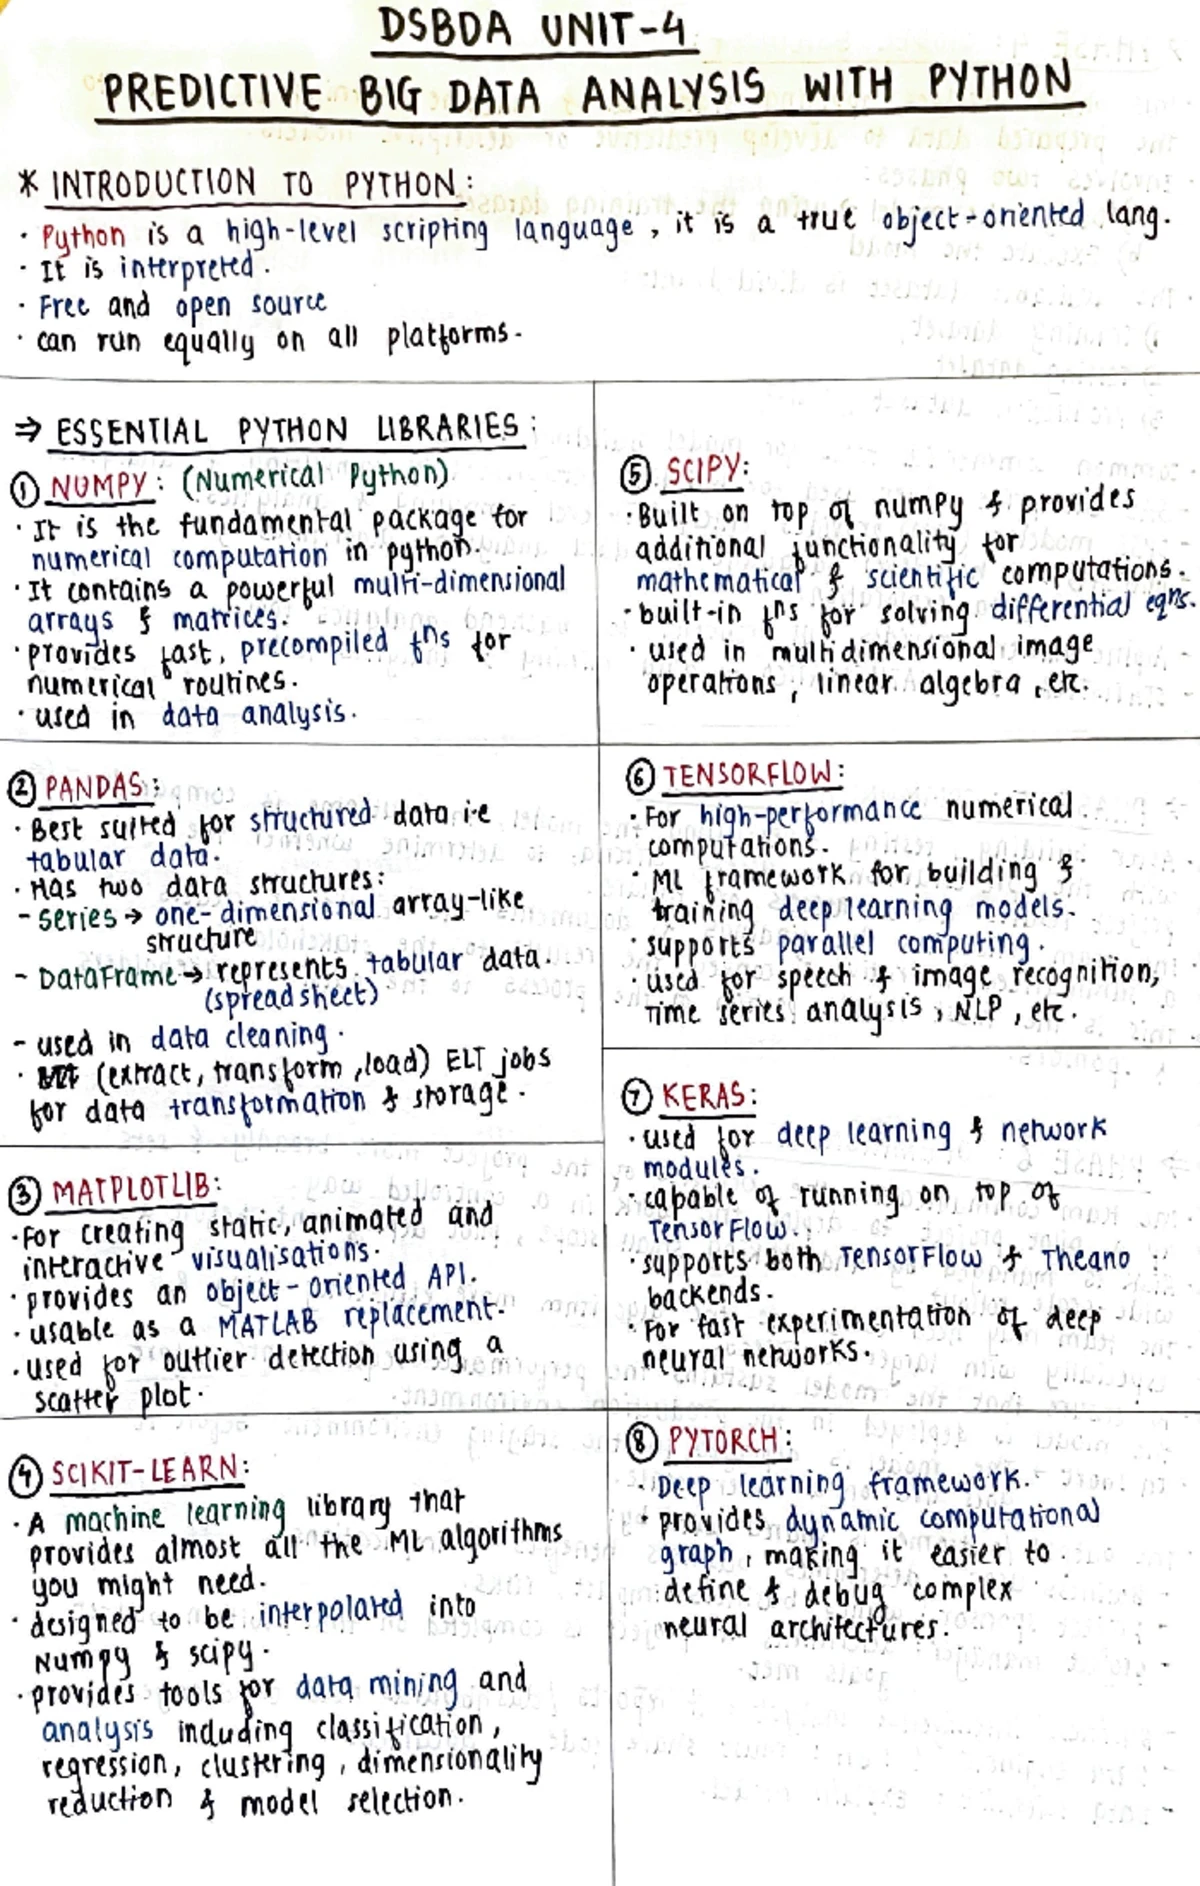 DSBDA UNIT-4
PREDICTIVE BIG DATA ANALYSIS WITH PYTHON
* INTRODUCTION TO PYTHON:
· Python is a high-level scripting language, it is a true object-oriented lang.
· It is interpreted.
· Free and open source
· can run equally on all platforms.
⇒ ESSENTIAL PYTHON LIBRARIES:
① NUMPY: (Numerical Python)
· It is the fundamental package for
numerical computation in python.
· It contains a powerful multi-dimensional
arrays & matrices.
· provides fast, precompiled fns for
numerical routines.
· used in data analysis.
② PANDAS:
· Best suited for structured data i.e
tabular data.
· Has two data structures:
- series → one-dimensional array-like
structure
- DataFrame → represents tabular data.
(spreadsheet)
- used in data cleaning.
· (extract, transform, load) ELT jobs
for data transformation & storage.
③ MATPLOTLIB:
· For creating static, animated and
interactive visualisations.
· provides an object-oriented API.
· usable as a MATLAB replacement.
· used for outlier detection using a
scatter plot.
④ SCIKIT-LEARN:
· A machine learning library that
provides almost all the ML algorithms
you might need.
· designed to be interpolated into
Numpy & scipy.
· provides tools for data mining and
analysis including classification,
regression, clustering, dimensionality
reduction & model selection.
⑤ SCIPY:
· Built on top of numpy & provides
additional functionality for
mathematical & scientific computations.
· built-in fns for solving differential eqns.
· used in multidimensional image
operations, linear algebra, etc.
⑥ TENSORFLOW:
· For high-performance numerical
computations.
· ML framework for building &
training deep learning models.
· supports parallel computing.
· used for speech & image recognition,
time series analysis, NLP, etc.
⑦ KERAS:
· used for deep learning & network
modules.
· capable of running on top of
TensorFlow.
· supports both TensorFlow & Theano
backends.
· For fast experimentation of deep
neural networks.
⑧ PYTORCH:
· Deep learning framework.
· provides dynamic computational
graph, making it easier to
define & debug complex
neural architectures.